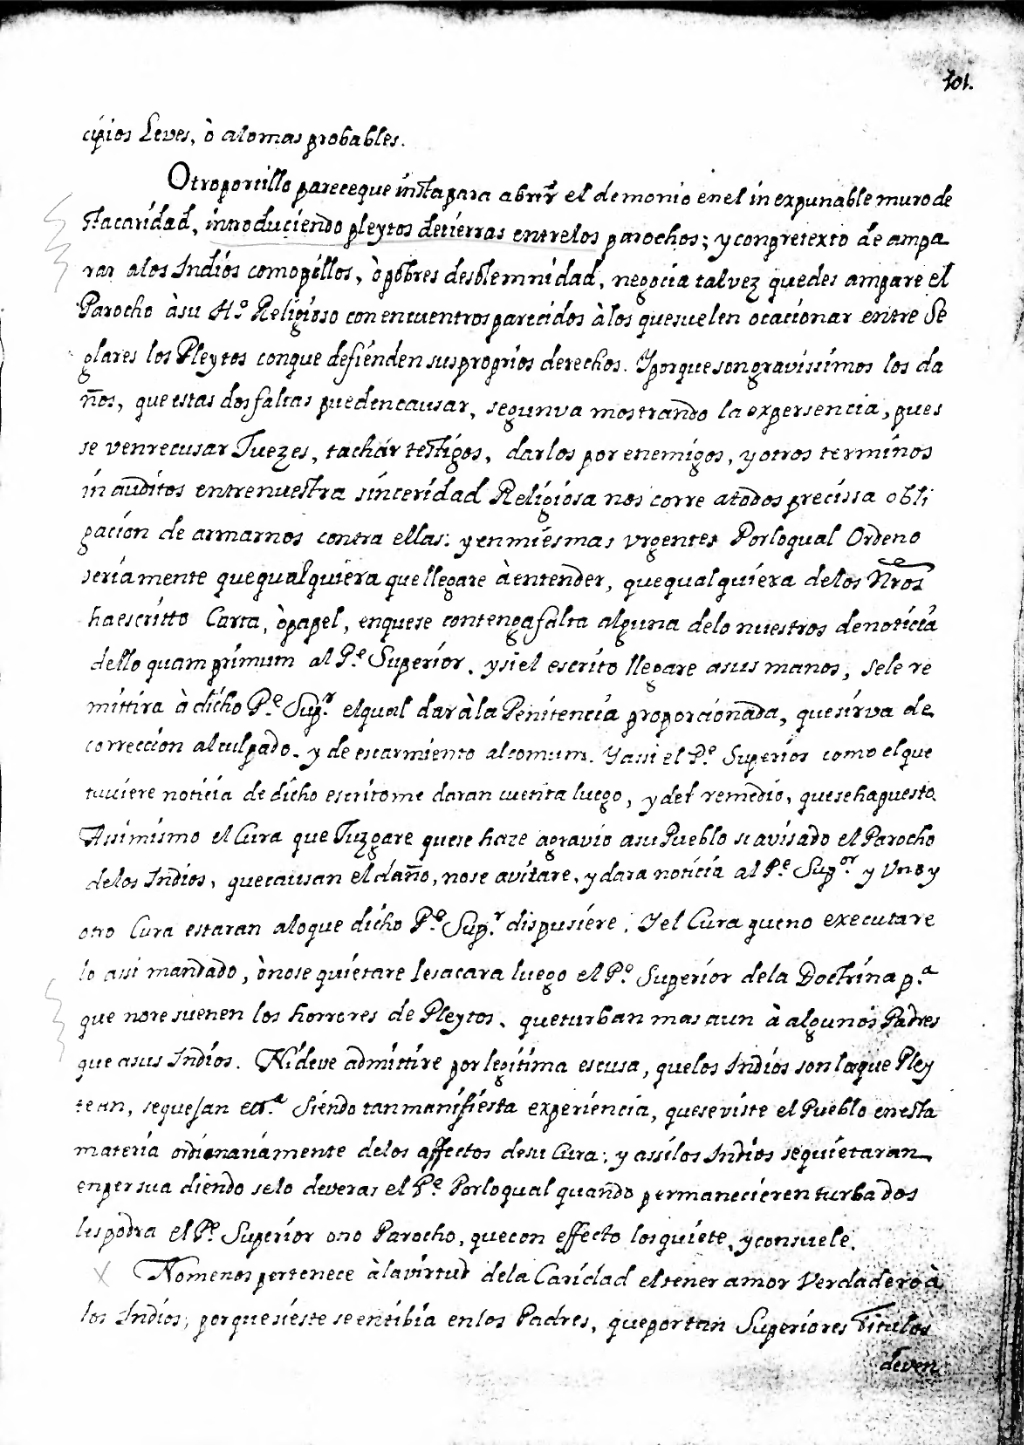 101.
cipios Leves, ò alomas probables.
Otroportillo pareceque instapara abrir el demonio enel inexpunable muro de
stacaridad, introduciendo pleytos detierras entrelos parochos; y conpretexto de ampa
rar alos Indios comopèllos, ò pobres desolemnidad, negocia talvez quedes ampare el
Parocho àsu Hº. Religioso con encuentros parecidos àlos quesuelen ocacionar entre Se
glares los Pleytos conque defienden sus proprios derechos. Yporque son gravissimos los da
ños, que estas dos faltas pueden causar, segun va mostrando la expersencia, pues
se venrecusar Juezes, tachàr testigos, darlos por enemigos, y otros terminos
inauditos entrenuestra sinceridad Religiosa nos corre atodos precissa obli
gacion de armarnos contra ellas: y enmiesmas urgentes Porloqual Ordeno
seriamente quequalquiera quellegare àentender, quequalquiera delos Nros
haescritto Carta, òpapel, enquese contengafalta alguna delo nuestros denoticia
dello quamprimum al Pe. Superior. ysiel escrito llegare asus manos, sele re
mittira à dicho Pe. Supr. elqual daràla Penitencia proporcionada, quesirva de
correccion alculpado. y de escarmiento alcomun. Yassi el Pe. Superior como elque
tuviere noticia de dicho escritome daran cuenta luego, y del remedio, quesehapuesto.
Assimismo el Cura que Juzgare quese haze agravio asu Pueblo si avisado el Parocho
delos Indios, quecausan el daño, nose avitare, y dara noticia al Pe. Supor. y Uno y
otro Cura estaran aloque dicho Pe. Supr. dispusiere. Yel Cura queno executare
lo assi mandado, ònose quietare lesacara luego el Pe. Superior dela Doctrina pa.
que noresuenen los horrores de Pleytos, queturban mas aun à algunos Padres
que asus Indios. Ni deve admittire por legitima escusa, quelos Indios son losque Pley
tean, sequejan etta. Siendo tan manifiesta experiencia, queseviste el Pueblo enesta
materia ordinariamente delos affectos desu Cura: y assilos Indios sequietaran
enpersuadiendo selo deveras el Pe. Porloqual quando permanecieren turbados
lespodra el Pe. Superior otro Parocho, quecon effecto losquiete, yconsuele.
Nomenos pertenece àlavirtud dela Caridad eltener amor Verdadero à
los Indios; porque sieste se entibia enlos Padres, queportan Superiores Titulos
deven